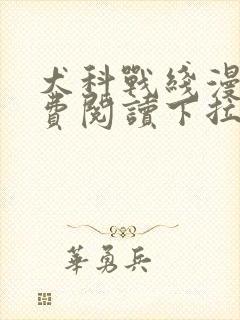 犬科戰綫漫
費閱讀下拉
華勇兵